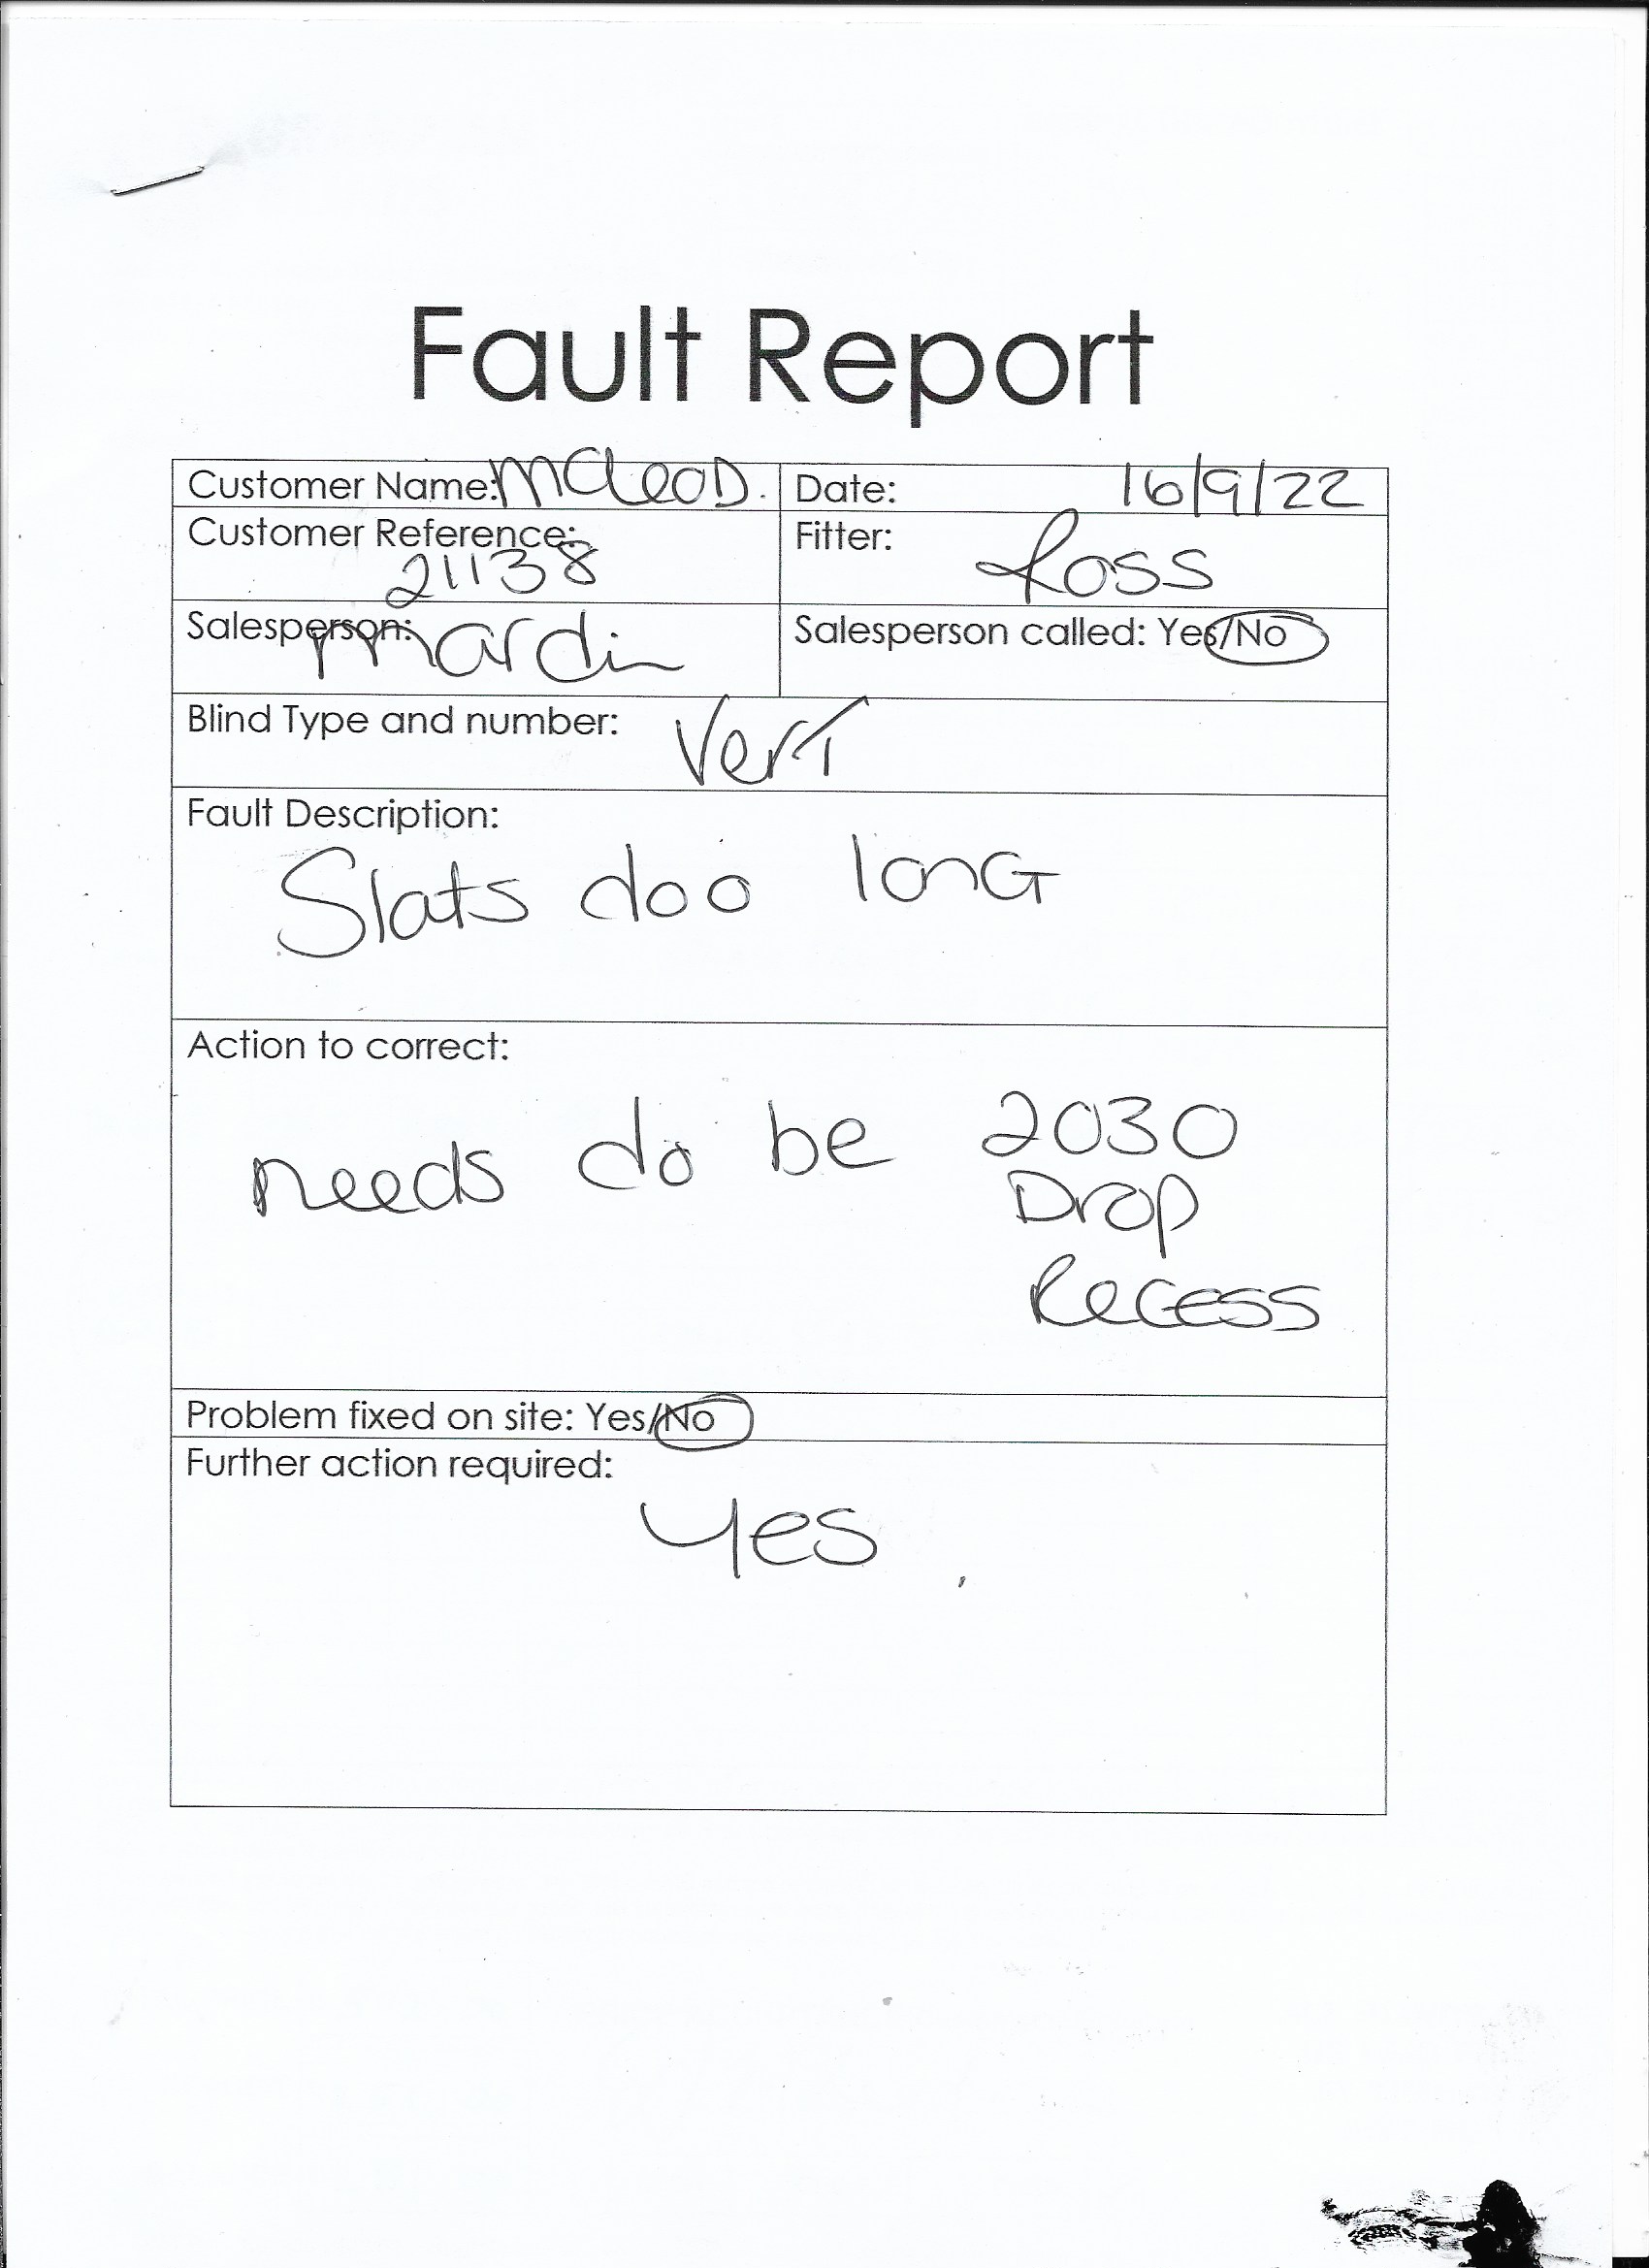 Fault Report
Customer Name: McLeoD.
Date: 16/9/22
Customer Reference: 21138
Fitter: Ross
Salesperson: Mardin
Salesperson called: Yes/No
Blind Type and number: VerT
Fault Description:
Slats doo lonG
Action to correct:
needs do be 2030
Drop
Recess
Problem fixed on site: Yes/No
Further action required:
Yes